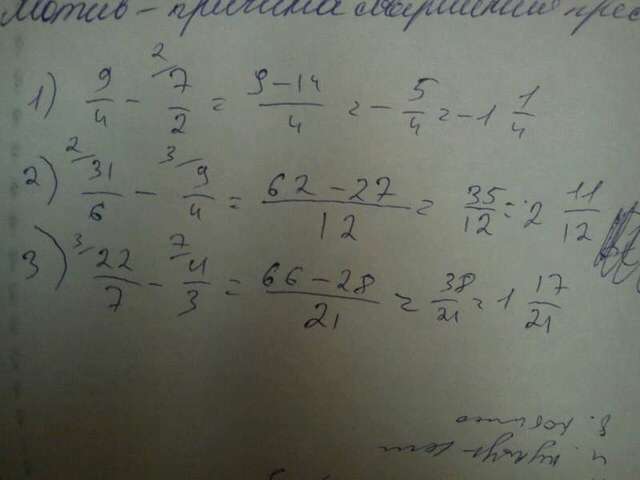 Мотив - причина совершения прес
1) 9/4 - 2/ 7/2 = 9-14/4 = - 5/4 = -1 1/4
2) 2/ 31/6 - 3/ 9/4 = 62-27/12 = 35/12 = 2 11/12
3) 3/ 22/7 - 7/ 4/3 = 66-28/21 = 38/21 = 1 17/21